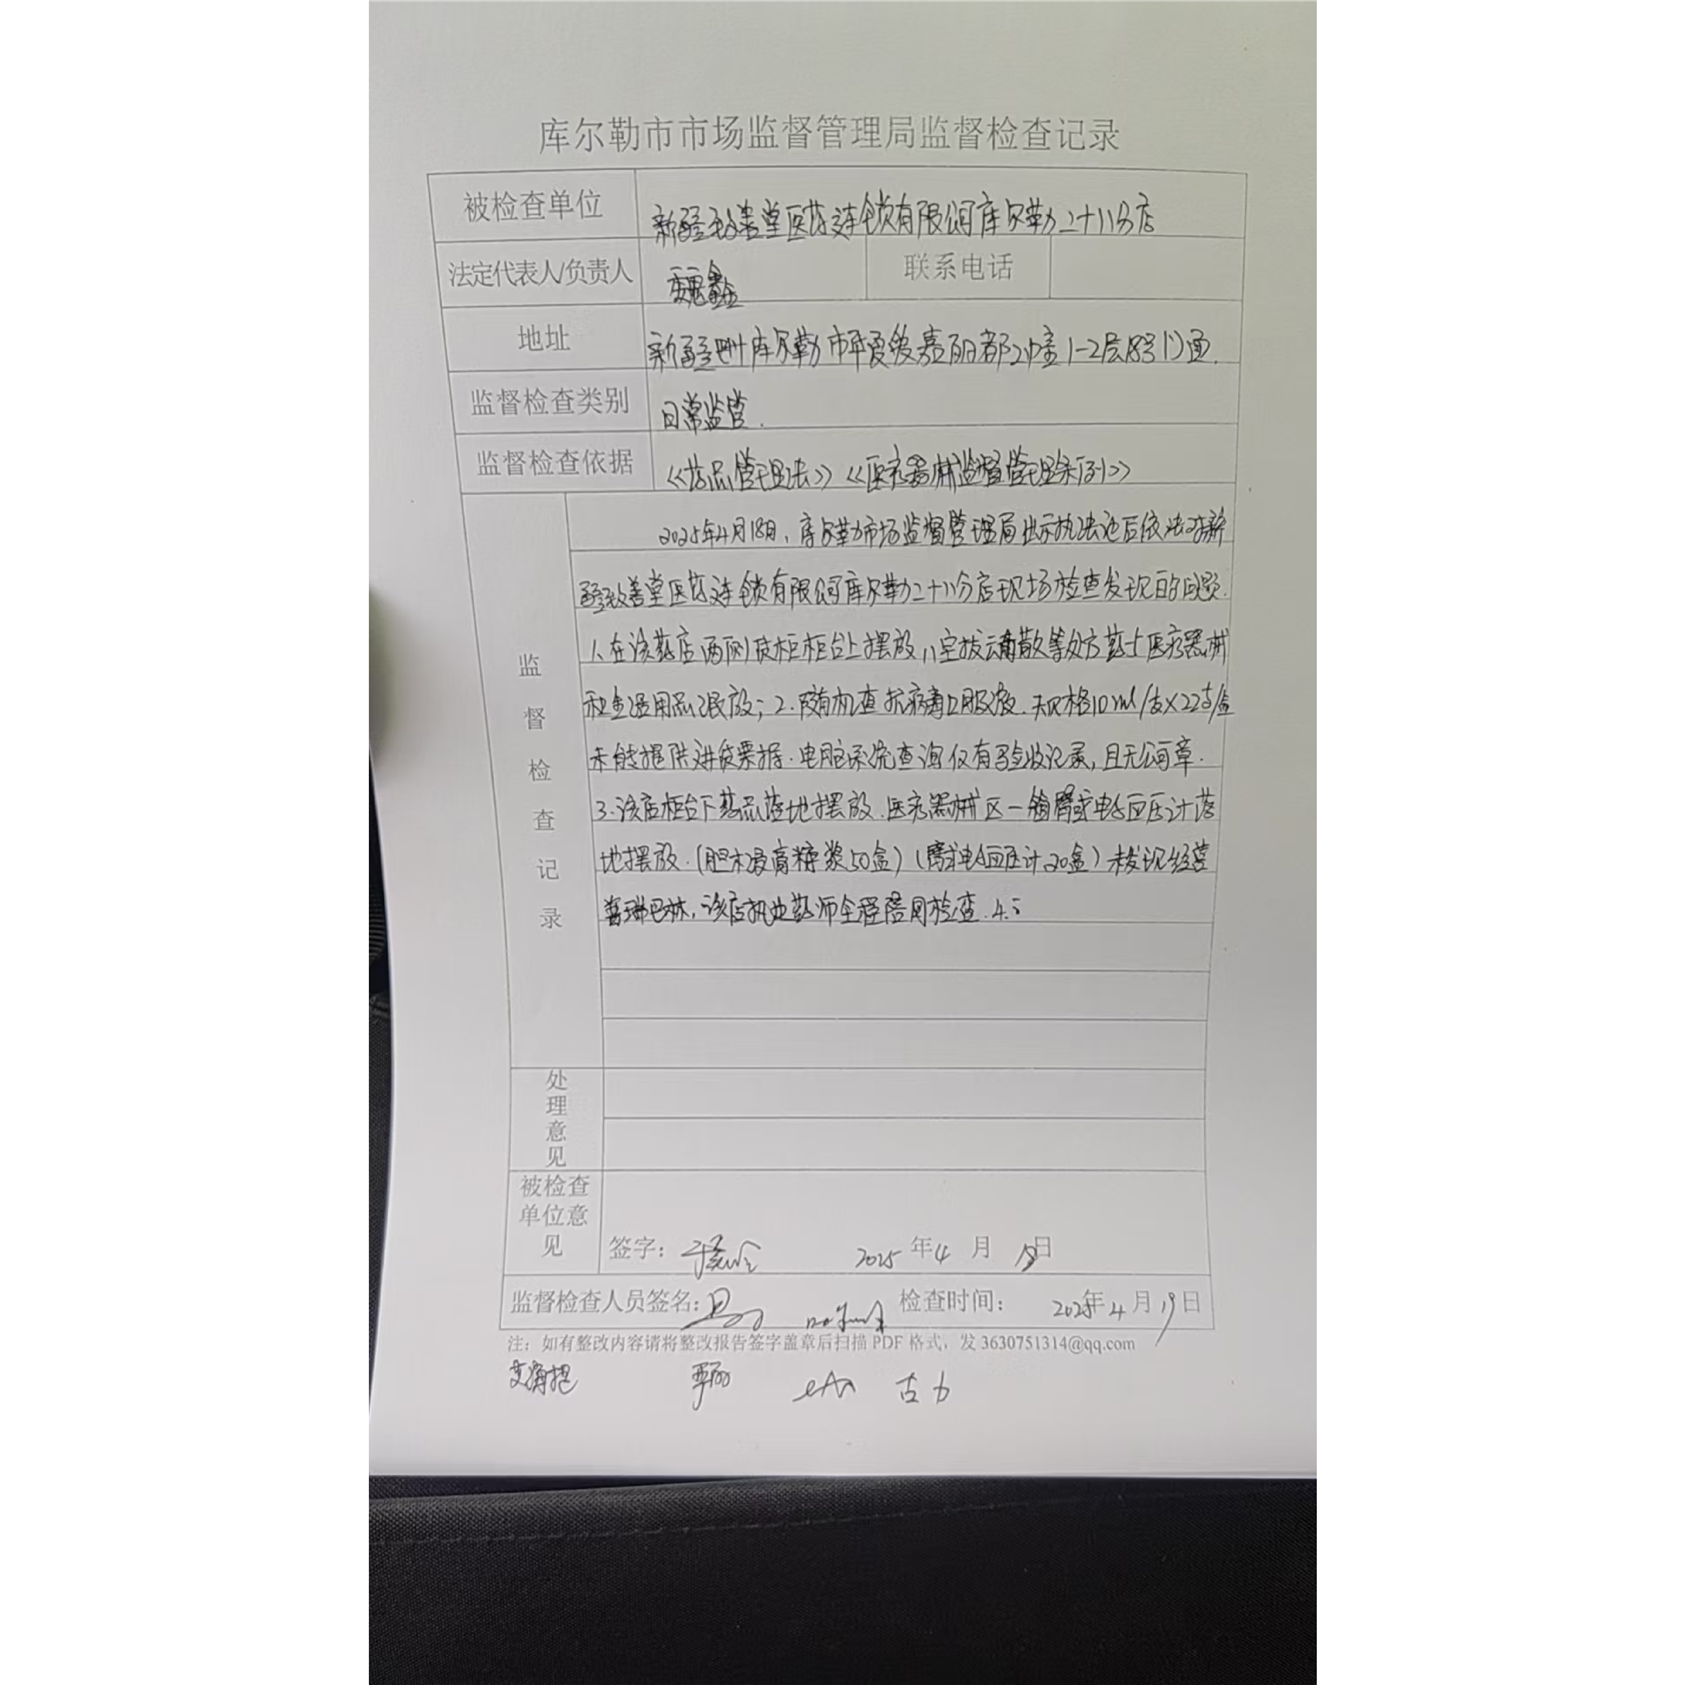 库尔勒市市场监督管理局监督检查记录
被检查单位 新疆致善堂医药连锁有限公司库尔勒二十八分店
法定代表人/负责人 魏鑫 联系电话
地址 新疆 库尔勒市 嘉丽都 1-2层18号
监督检查类别 日常监管.
监督检查依据 《药品管理法》《医疗器械监督管理条例》
监督检查记录
2025年4月18日,库尔勒市场监督管理局出示执法证后依法对新
疆致善堂医药连锁有限公司库尔勒二十八分店现场检查发现的问题.
1、在该药店两侧 柜柜台上摆放, 散等处方药与医疗器械
和生活用品混放;2.随机查抗病毒口服液.规格10ml/支×22支/盒
未能提供进货票据.电脑系统查询仅有验收记录,且无公司章.
3.该店柜台下药品落地摆放.医疗器械区一箱臂式电子血压计落
地摆放.(胆木浸膏糖浆50盒)(臂式电子血压计20盒)未发现经营
普瑞巴林,该店执业药师全程陪同检查.4.
处理意见
被检查单位意见
签字: 2025年4月 日
监督检查人员签名: 检查时间: 2025年4月19日
注:如有整改内容请将整改报告签字盖章后扫描PDF格式,发3630751314@qq.com
古力